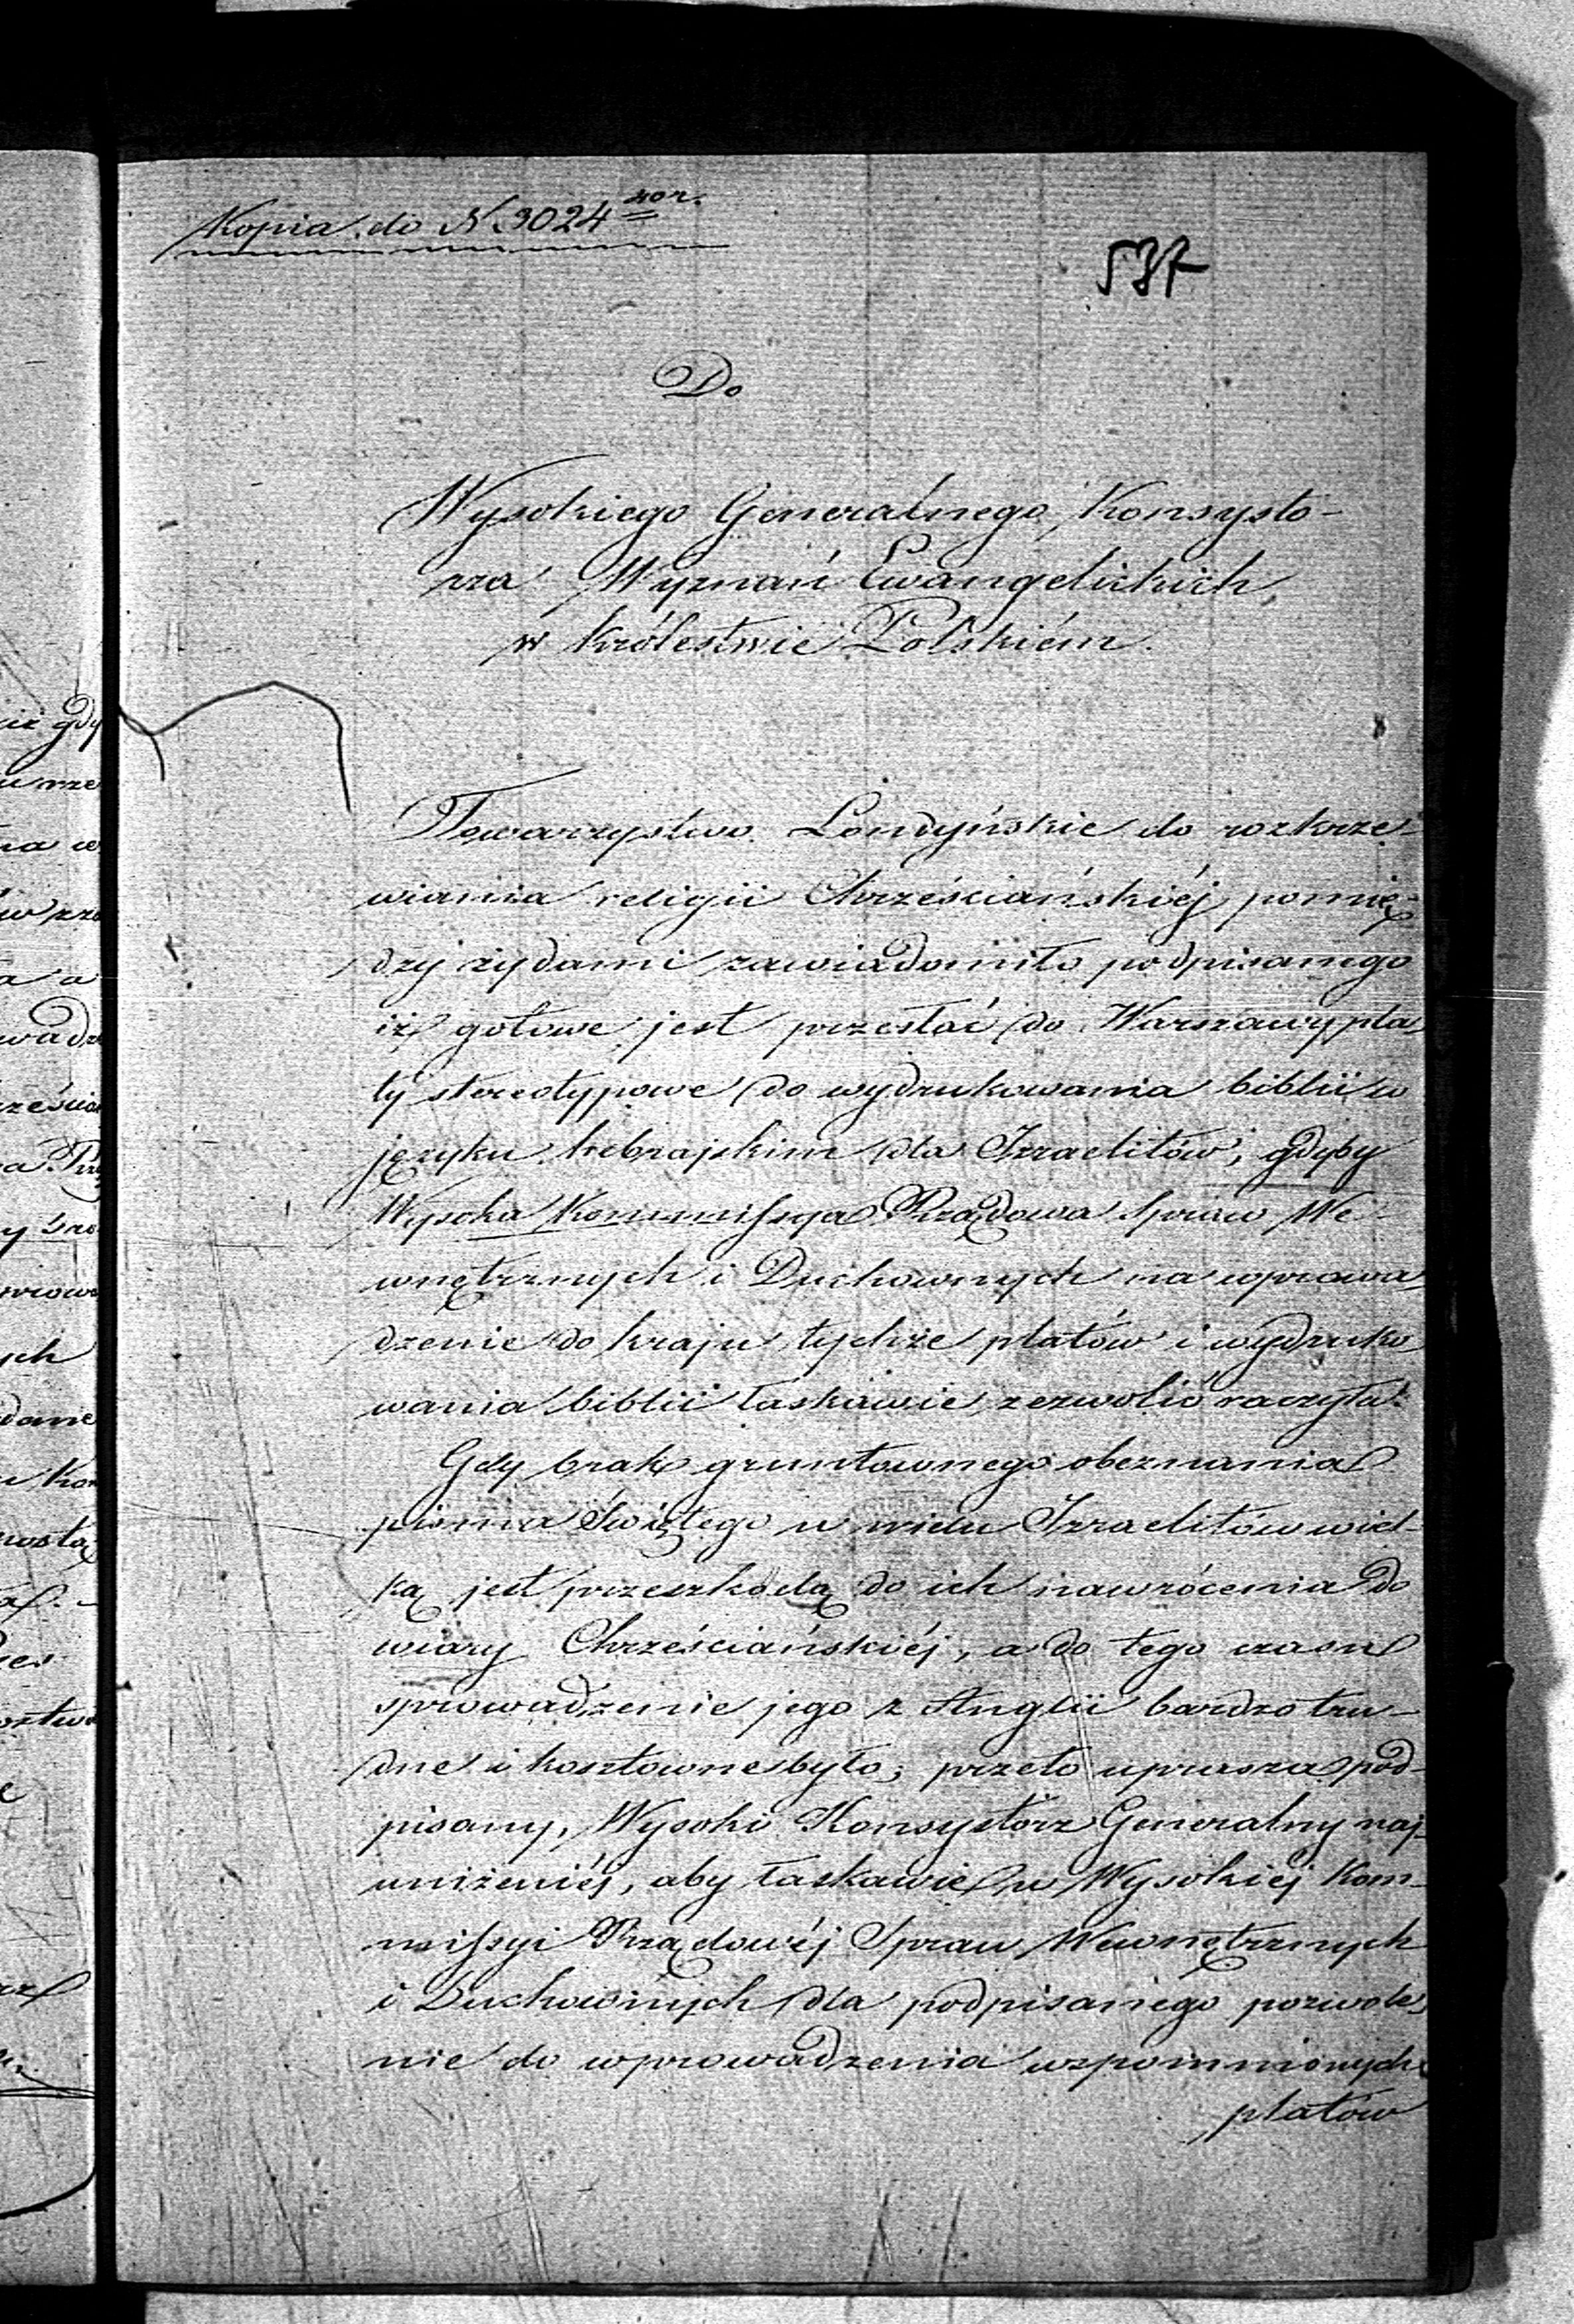 Kopia do N. 3024 40r.
537
Do
Wysokiego Generalnego Konsysto-
rza Wyznań Ewangelickich
w Królestwie Polskiém.
Towarzystwo Londyńskie do rozkrze-
wiania religii Chrześciańskiéj pomię-
dzy żydami zawiadomiło podpisanego
iż gotowe jest przesłać do Warszawy pla
ty stereotypowe do wydrukowania biblii w
języku hebrajskim dla Izraelitów, gdyby
Wysoka Kommissya Rządowa Spraw We-
wnętrznych i Duchownych na wprowa
dzenie do kraju tychże platów i wydruko
wania biblii łaskawie zezwolić raczyła.
Gdy brak gruntownego obeznania
pisma Świętego u wielu Izraelitów wiel-
ką jest przeszkodą do ich nawrócenia do
wiary Chrześciańskiéj, a do tego czasu
sprowadzenie jego z Anglii bardzo tru-
dne i kosztowne było; przeto uprasza pod-
pisany, Wysoki Konsystórz Generalny naj-
uniżeniéj, aby łaskawie u Wysokiéj Kom-
missyi Rządowéj Spraw Wewnętrznych
i Duchownych dla podpisanego pozwole
nie do wprowadzenia wspomnionych
platów
gdy
ych